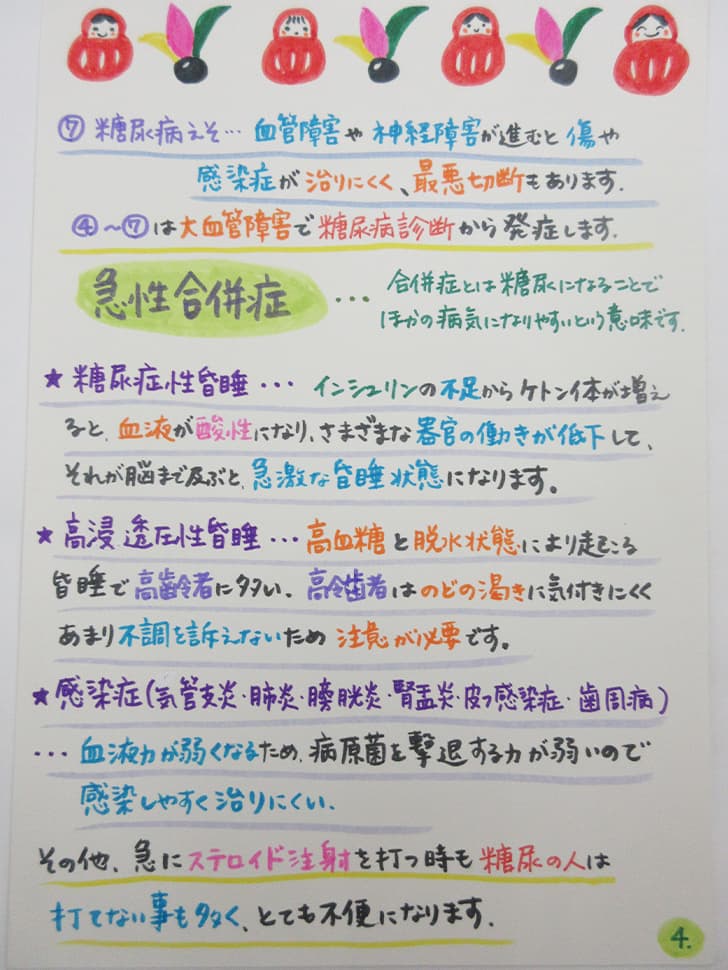 ⑦ 糖尿病えそ… 血管障害や神経障害が進むと傷や
感染症が治りにくく、最悪切断もあります.
④〜⑦は大血管障害で糖尿病診断から発症します.
急性合併症
… 合併症とは糖尿になることで
ほかの病気になりやすいという意味です.
★ 糖尿症性昏睡… インシュリンの不足からケトン体が増え
ると、血液が酸性になり、さまざまな器官の働きが低下して、
それが脳まで及ぶと、急激な昏睡状態になります。
★ 高浸透圧性昏睡… 高血糖と脱水状態により起こる
昏睡で高齢者に多い、高齢者はのどの渇きに気付きにくく
あまり不調を訴えないため注意が必要です。
★ 感染症(気管支炎・肺炎・膀胱炎・腎盂炎・皮フ感染症・歯周病)
… 血液力が弱くなるため、病原菌を撃退する力が弱いので
感染しやすく治りにくい.
その他、急にステロイド注射を打つ時も糖尿の人は
打てない事も多く、とても不便になります.
4.